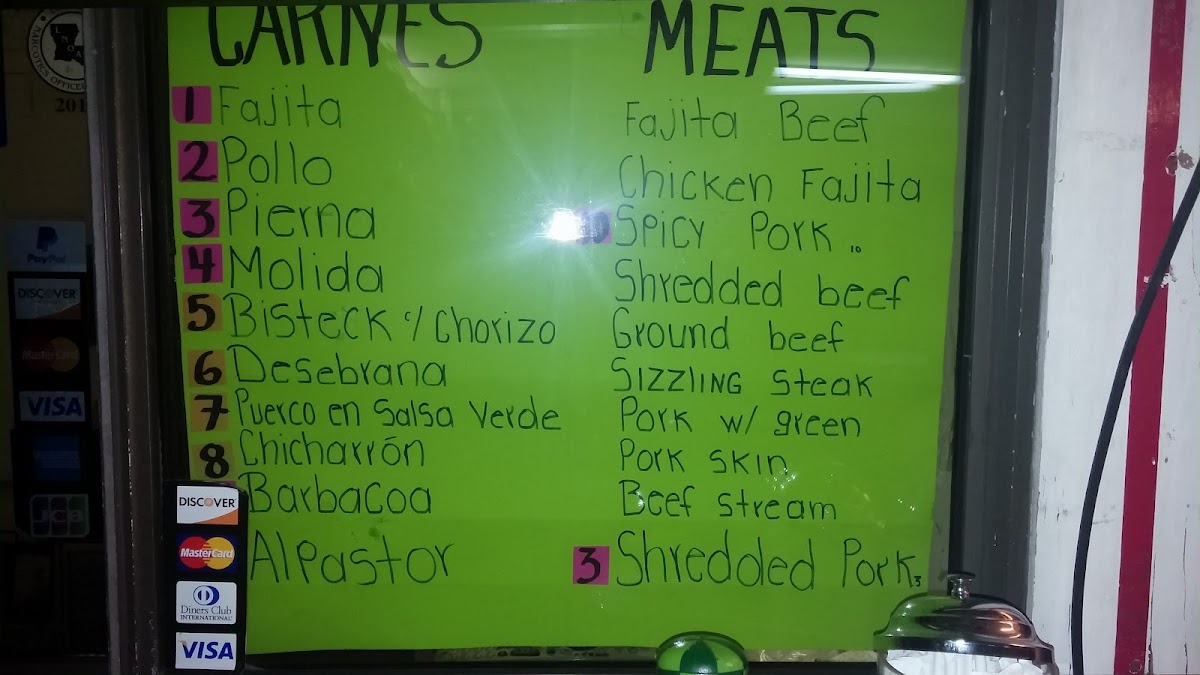 CARNES MEATS
1 Fajita Fajita Beef
2 Pollo Chicken Fajita
3 Pierna 10 Spicy Pork 10
4 Molida Shredded beef
5 Bisteck c/ Chorizo Ground beef
6 Desebrana SIZZLING Steak
7 Puerco en Salsa Verde Pork w/ green
8 Chicharrón Pork skin
Barbacoa Beef stream
Al Pastor 3 Shredded Pork 3
NARCOTICS OFFICERS
201
PayPal
DISCOVER
MasterCard
VISA
JCB
DISCOVER
MasterCard
Diners Club
INTERNATIONAL
VISA